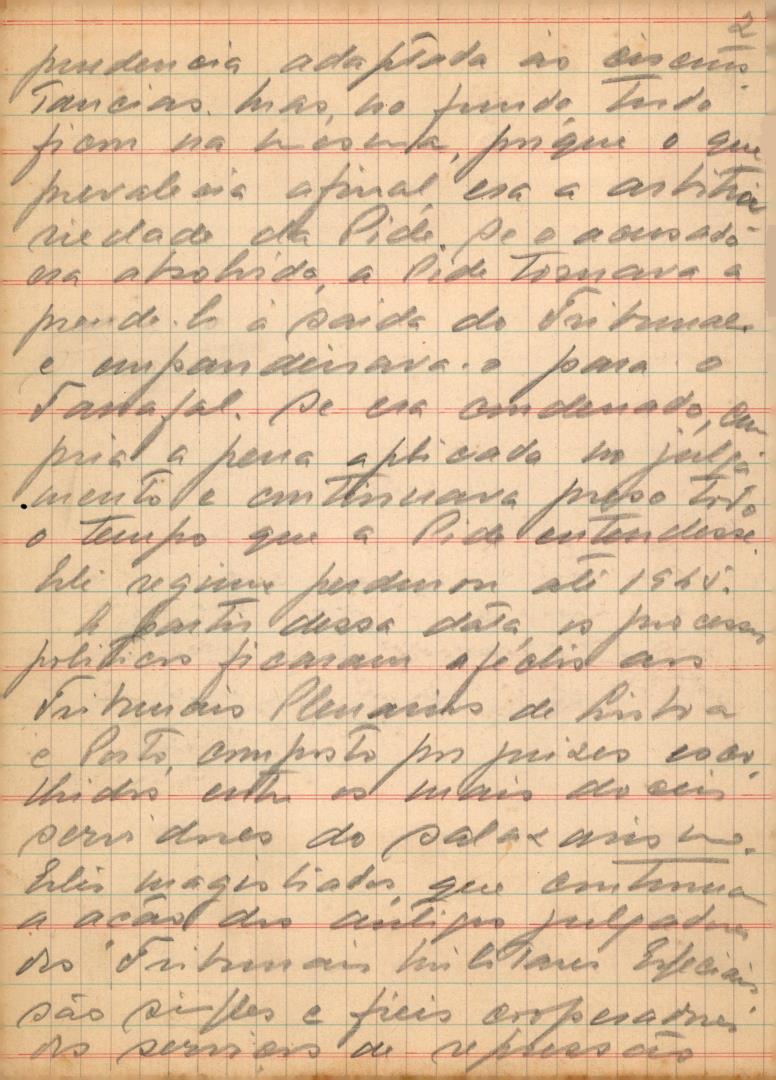 2
prudencia adaptada ás circuns
tancias. Mas, no fundo tudo
ficou na mesma, porque o que
prevalecia afinal, era a arbitra
riedade da Pide. Se o acusado
era absolvido, a Pide tornava a
prende-lo á saida do Tribunal
e empandeirava-o para o
Tarrafal. Se era condenado, cum
pria a pena aplicada no julga
mento e continuava preso todo
o tempo que a Pide entendesse.
Este regime perdurou até 1945.
A partir dessa data, os processos
politicos ficaram afétos aos
Tribunais Plenarios de Lisboa
e Porto, composto por juizes esco
lhidos entre os mais doceis
servidores do salazarismo.
Estes magistrados, que continuam
a acção dos antigos julgadores
dos Tribunais Militares Especiais
são simples e fieis cooperadores
dos serviços de repressão